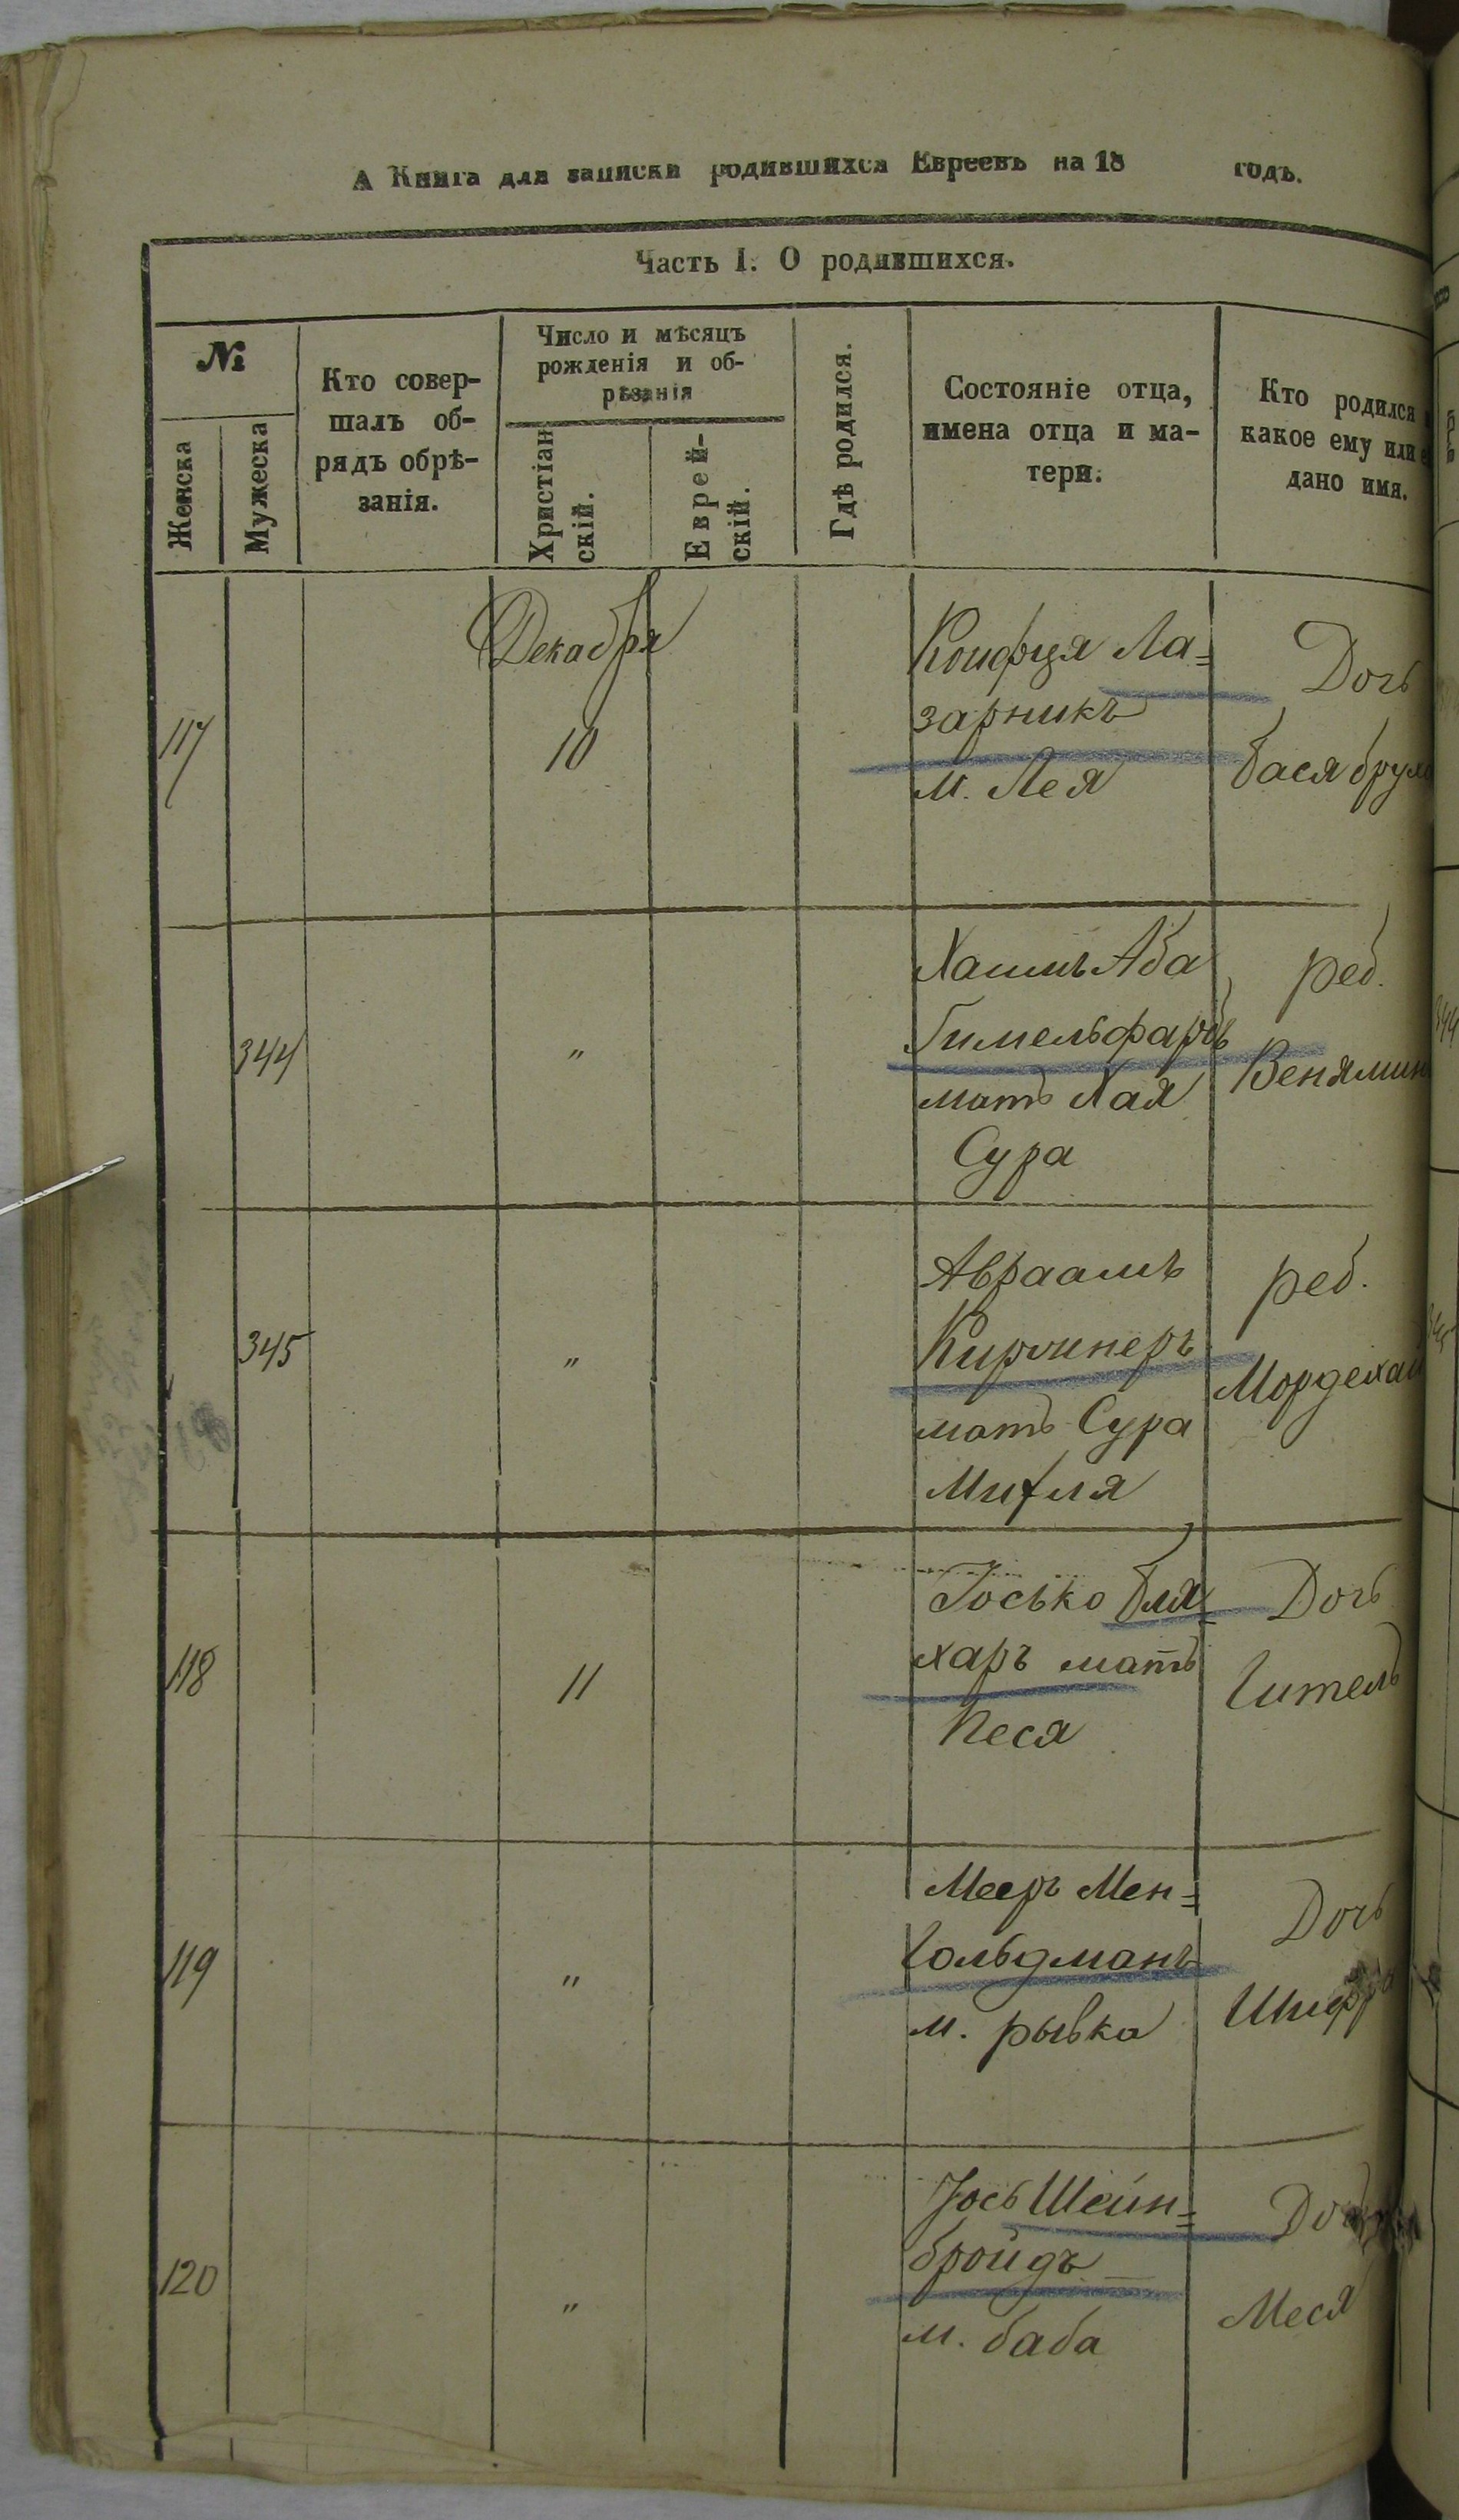 А Книга для записки родившихся Евреевъ на 18 годъ.
Часть I. О родившихся.
№
Женска
Мужеска
Кто совер-
шалъ об-
рядъ обрѣ-
занія.
Число и мѣсяцъ
рожденія и об-
рѣзанія
Христіан
скій.
Еврей-
скій.
Гдѣ родился.
Состояніе отца,
имена отца и ма-
тери.
Кто родился
какое ему или
дано имя.
Декабря
117
10
Ла=
зарникъ
м. Лея
Дочь
Бася
344
"
Хаимъ Аба
Гимельфарбъ
мать Хая
Сура
реб.
Венямин
345
"
Авраамъ
Киржнеръ
мать Сура
реб.
Мордехай
118
11
Іосько Бля=
харъ мать
Песя
Дочь
Гитель
119
"
Мееръ Мен=
гольдманъ
м. рывка
Дочь
Шифра
120
"
Іось Шейн=
бройдъ
м. баба
Меся